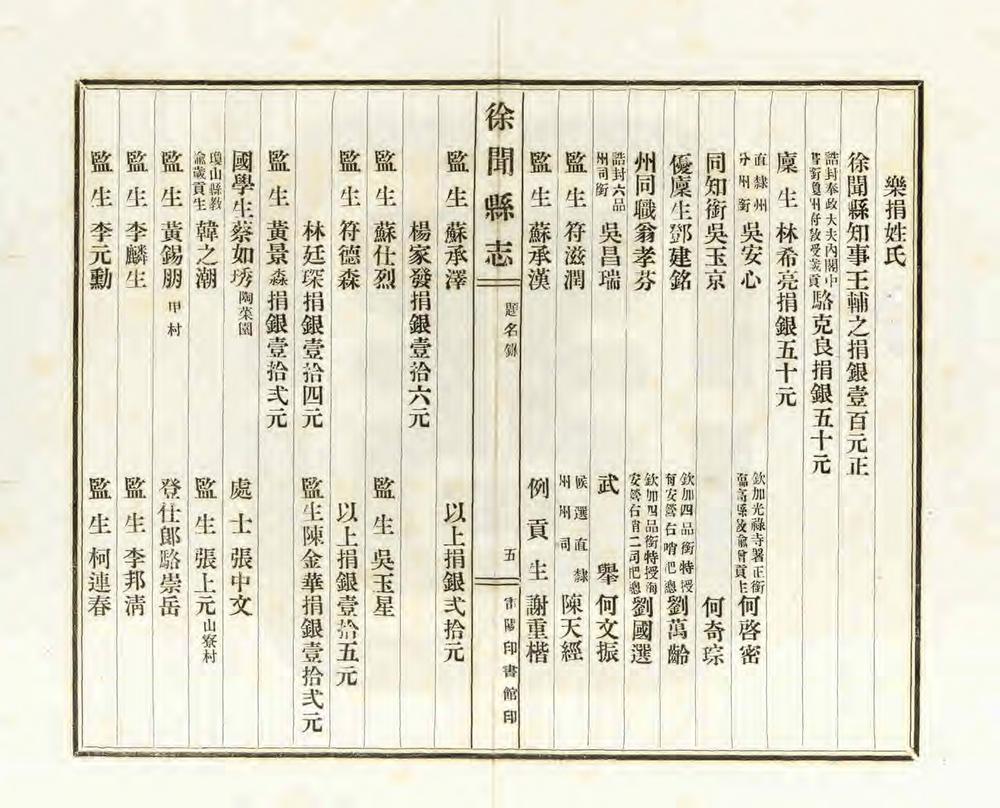 樂捐姓氏
徐聞縣知事王輔之捐銀壹百元正
誥封奉政大夫內閣中
書銜瓊州府教授歲貢
駱克良捐銀五十元
廩生林希亮捐銀五十元
直隸州
分州銜
吳安心
欽加光祿寺署正銜
縣教諭曾貢生
何啓密
同知銜吳玉京
何奇琮
優廩生鄧建銘
欽加四品銜特授
安營右哨把總
劉萬齡
州同職翁孝芬
欽加四品銜特授海
安營右哨二司把總
劉國選
誥封六品
州司銜
吳昌瑞
武舉何文振
監生符滋潤
候選直隸
州州司
陳天經
監生蘇承漢
例貢生謝重楷
徐聞縣志
題名錄
五
印書館印
監生蘇承澤
以上捐銀弍拾元
楊家發捐銀壹拾六元
監生蘇仕烈
監生吳玉星
監生符德森
以上捐銀壹拾五元
林廷琛捐銀壹拾四元
監生陳金華捐銀壹拾弍元
監生黃景森捐銀壹拾弍元
國學生蔡如琇陶菜園
處士張中文
瓊山縣教
諭歲貢生
韓之潮
監生張上元山寮村
監生黃錫朋甲村
登仕郎駱崇岳
監生李麟生
監生李邦清
監生李元勳
監生柯連春